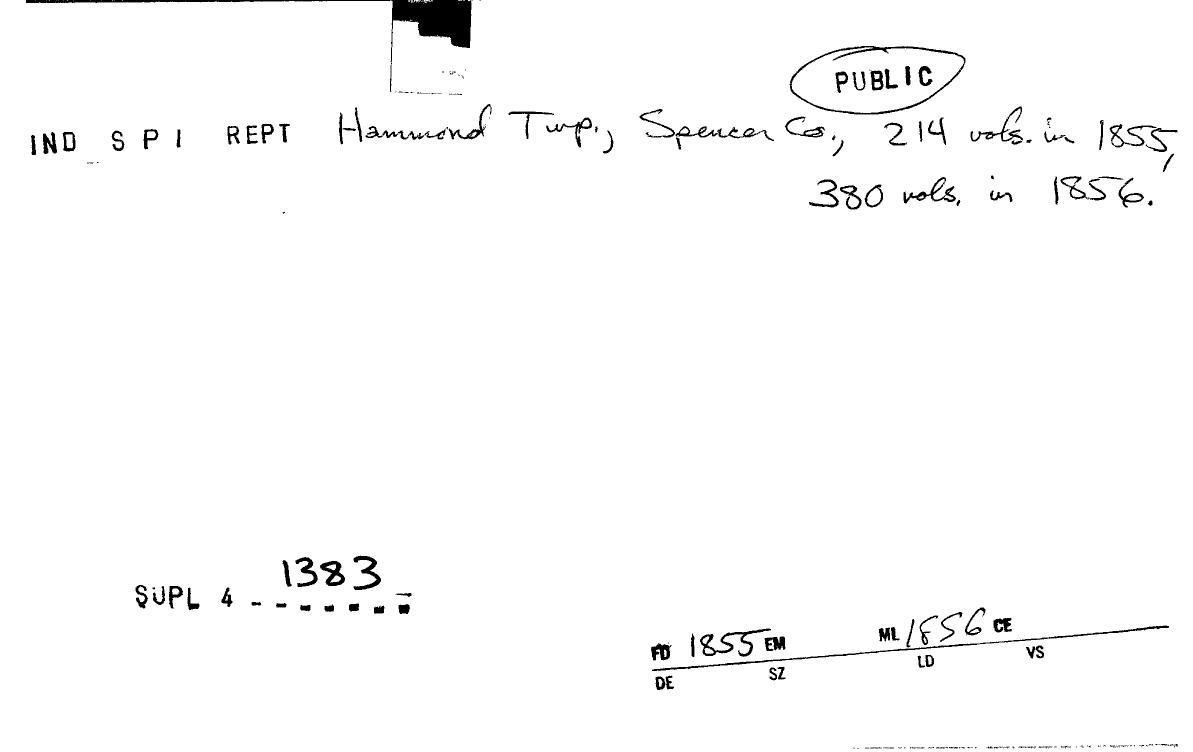 PUBLIC
IND S P I REPT Hammond Twp., Spencer Co., 214 vols. in 1855,
380 vols. in 1856.
1383
SUPL 4 - - - - - - -
FD 1855 EM ML 1856 CE
DE SZ LD VS